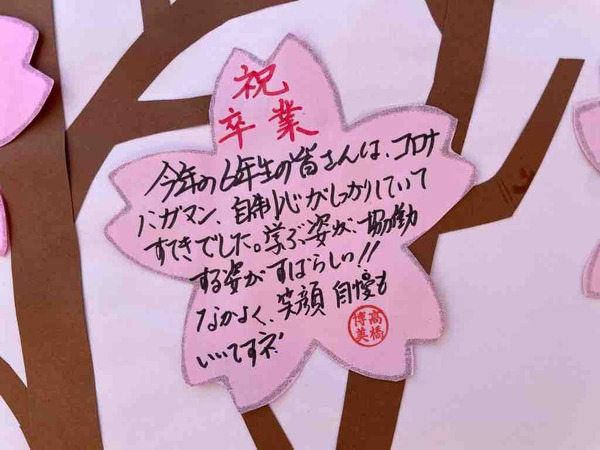 祝
卒業
今年の6年生の皆さんは、コロナ
ガマン、自制心がしっかりしていて
すてきでした。学ぶ姿が、協働
する姿がすばらしい!!
なかよく、笑顔 自慢も
いいですネ!
高橋
博美